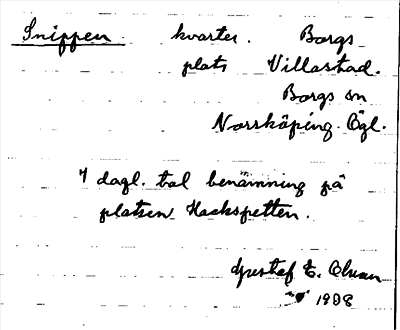 Snippen kvarter. Borgs
plats Villastad.
Borgs sn
Norrköping. Ögl.
I dagl. tal benämning på
platsen Hackspetten.
Gustaf E. Olsson
1988